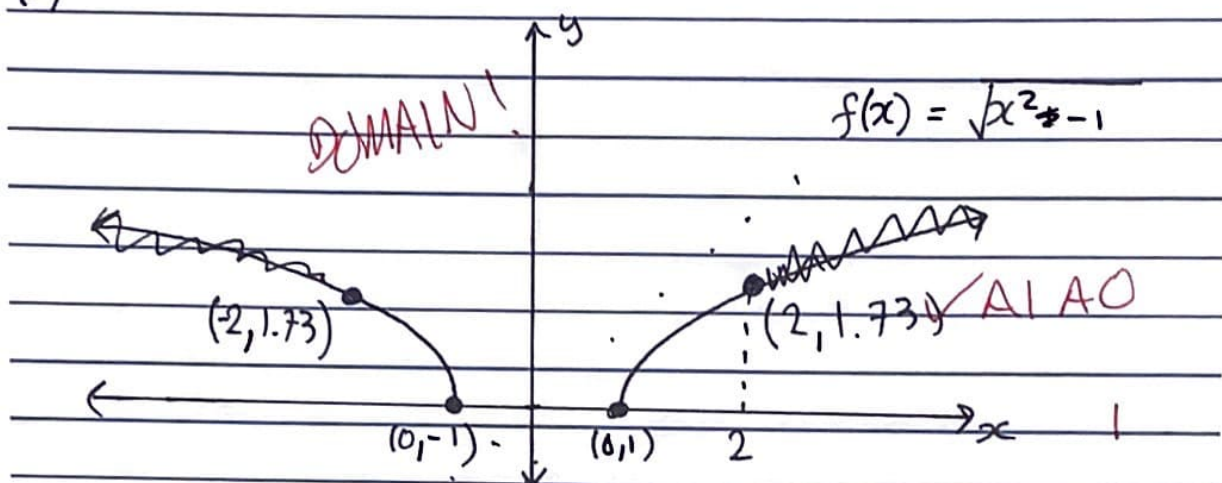 y
DOMAIN!
f(x) = √x² - 1
(-2, 1.73)
(2, 1.73) ✓ A1 A0
(0,-1)
(0,1)
2
x
1